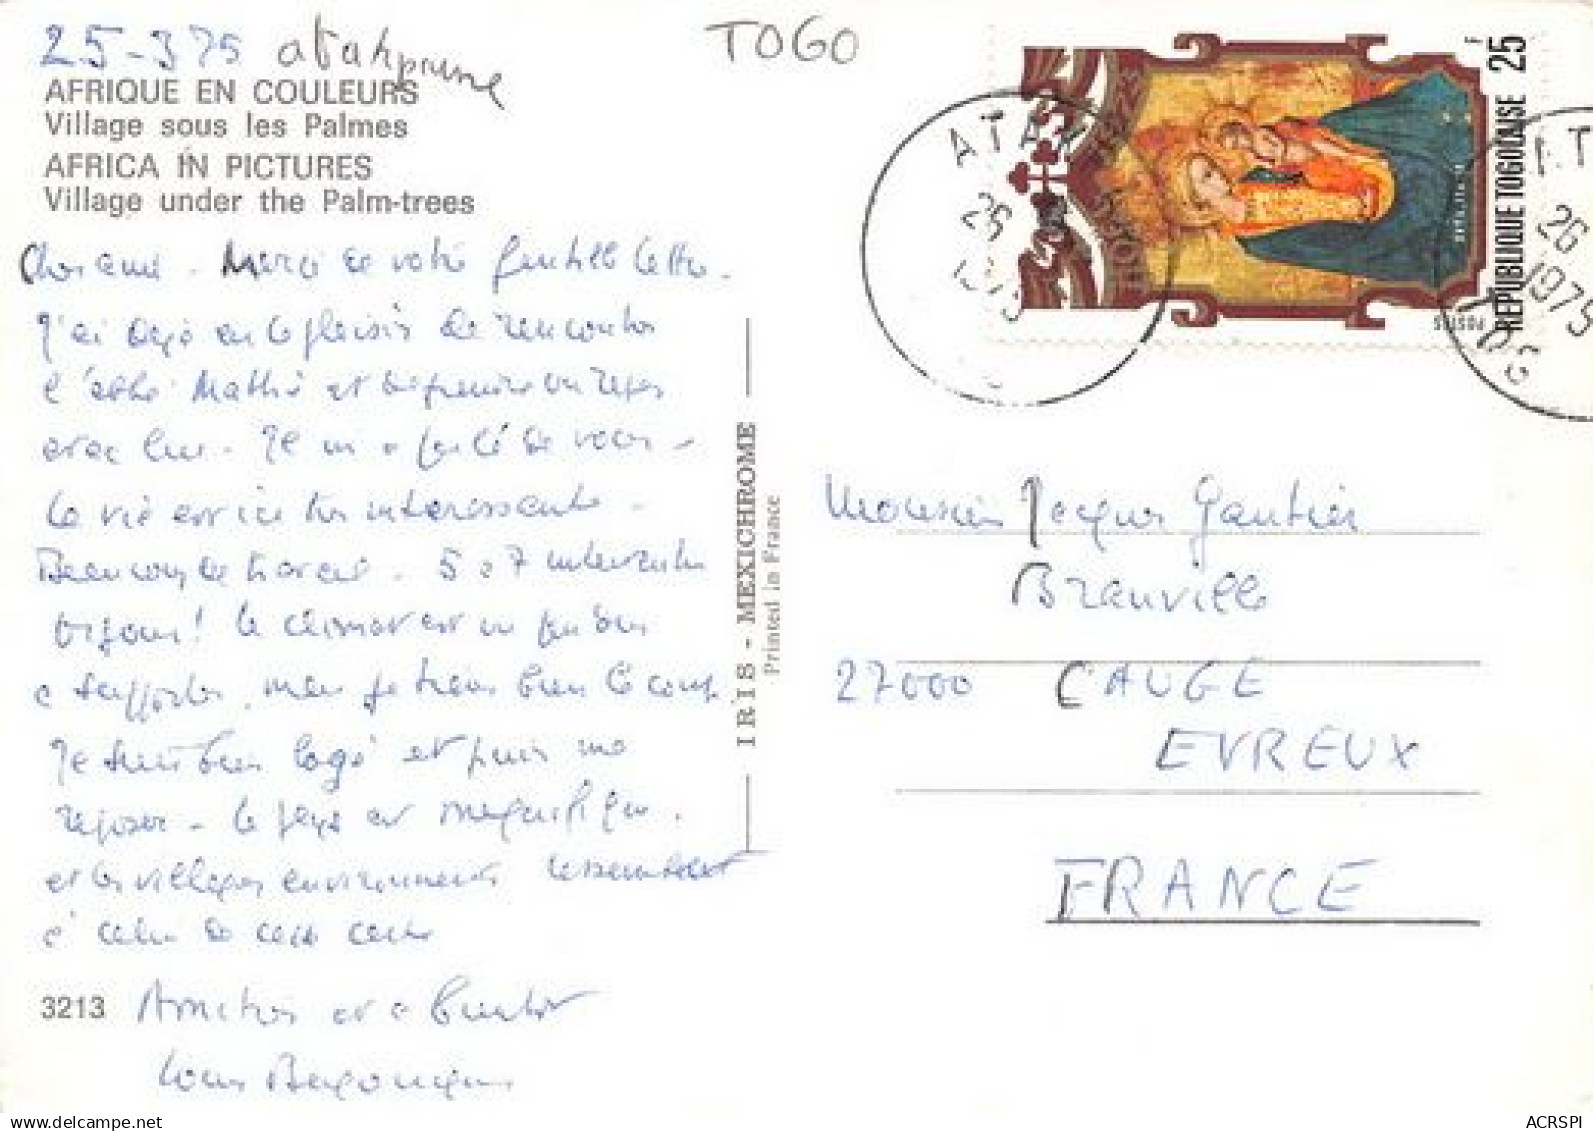 25-375 atakpame
TOGO
AFRIQUE EN COULEURS
Village sous les Palmes
AFRICA IN PICTURES
Village under the Palm-trees
Cher ami - Merci de votre gentille lettre.
J'ai déjà eu le plaisir de rencontrer
l'abbé Mathé et de prendre un repas
avec lui - Il m'a parlé de vous -
La vie est ici très intéressante -
Beaucoup de travail - 5 à 7 interventions
par jour! Le climat est un peu dur
à supporter, mais je tiens bien le coup.
Je suis bien logé et puis me
reposer - Le pays est magnifique.
et les villages environnants ressemblent
à celui de cette carte
3213 Amitiés et à bientôt
Louis
IRIS - MEXICHROME
Printed in France
REPUBLIQUE TOGOLAISE 25 F
POSTES
ATAK
26
1975
26
1975
TOG
Monsieur Jacques Gautier
Branville
27000 CAUGE
EVREUX
FRANCE
www.delcampe.net
ACRSPI